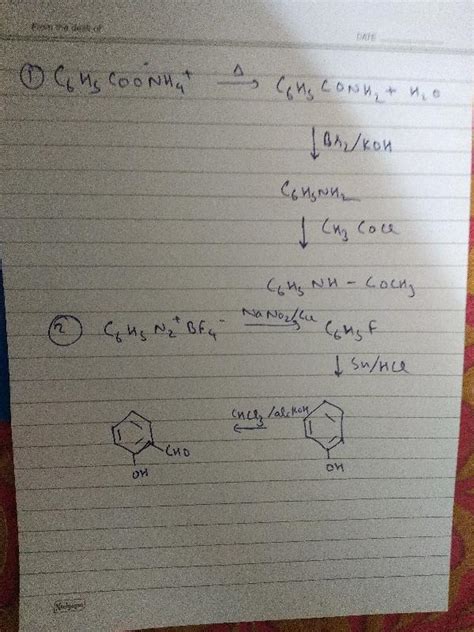 From the desk of
DATE
① C₆H₅COO⁻NH₄⁺ Δ→ C₆H₅CONH₂ + H₂O
↓ Br₂/KOH
C₆H₅NH₂
↓ CH₃COCl
C₆H₅NH - COCH₃
② C₆H₅N₂⁺BF₄⁻ NaNO₂/Cu→ C₆H₅F
↓ Sn/HCl
CHCl₃/alc KOH
CHO
OH OH